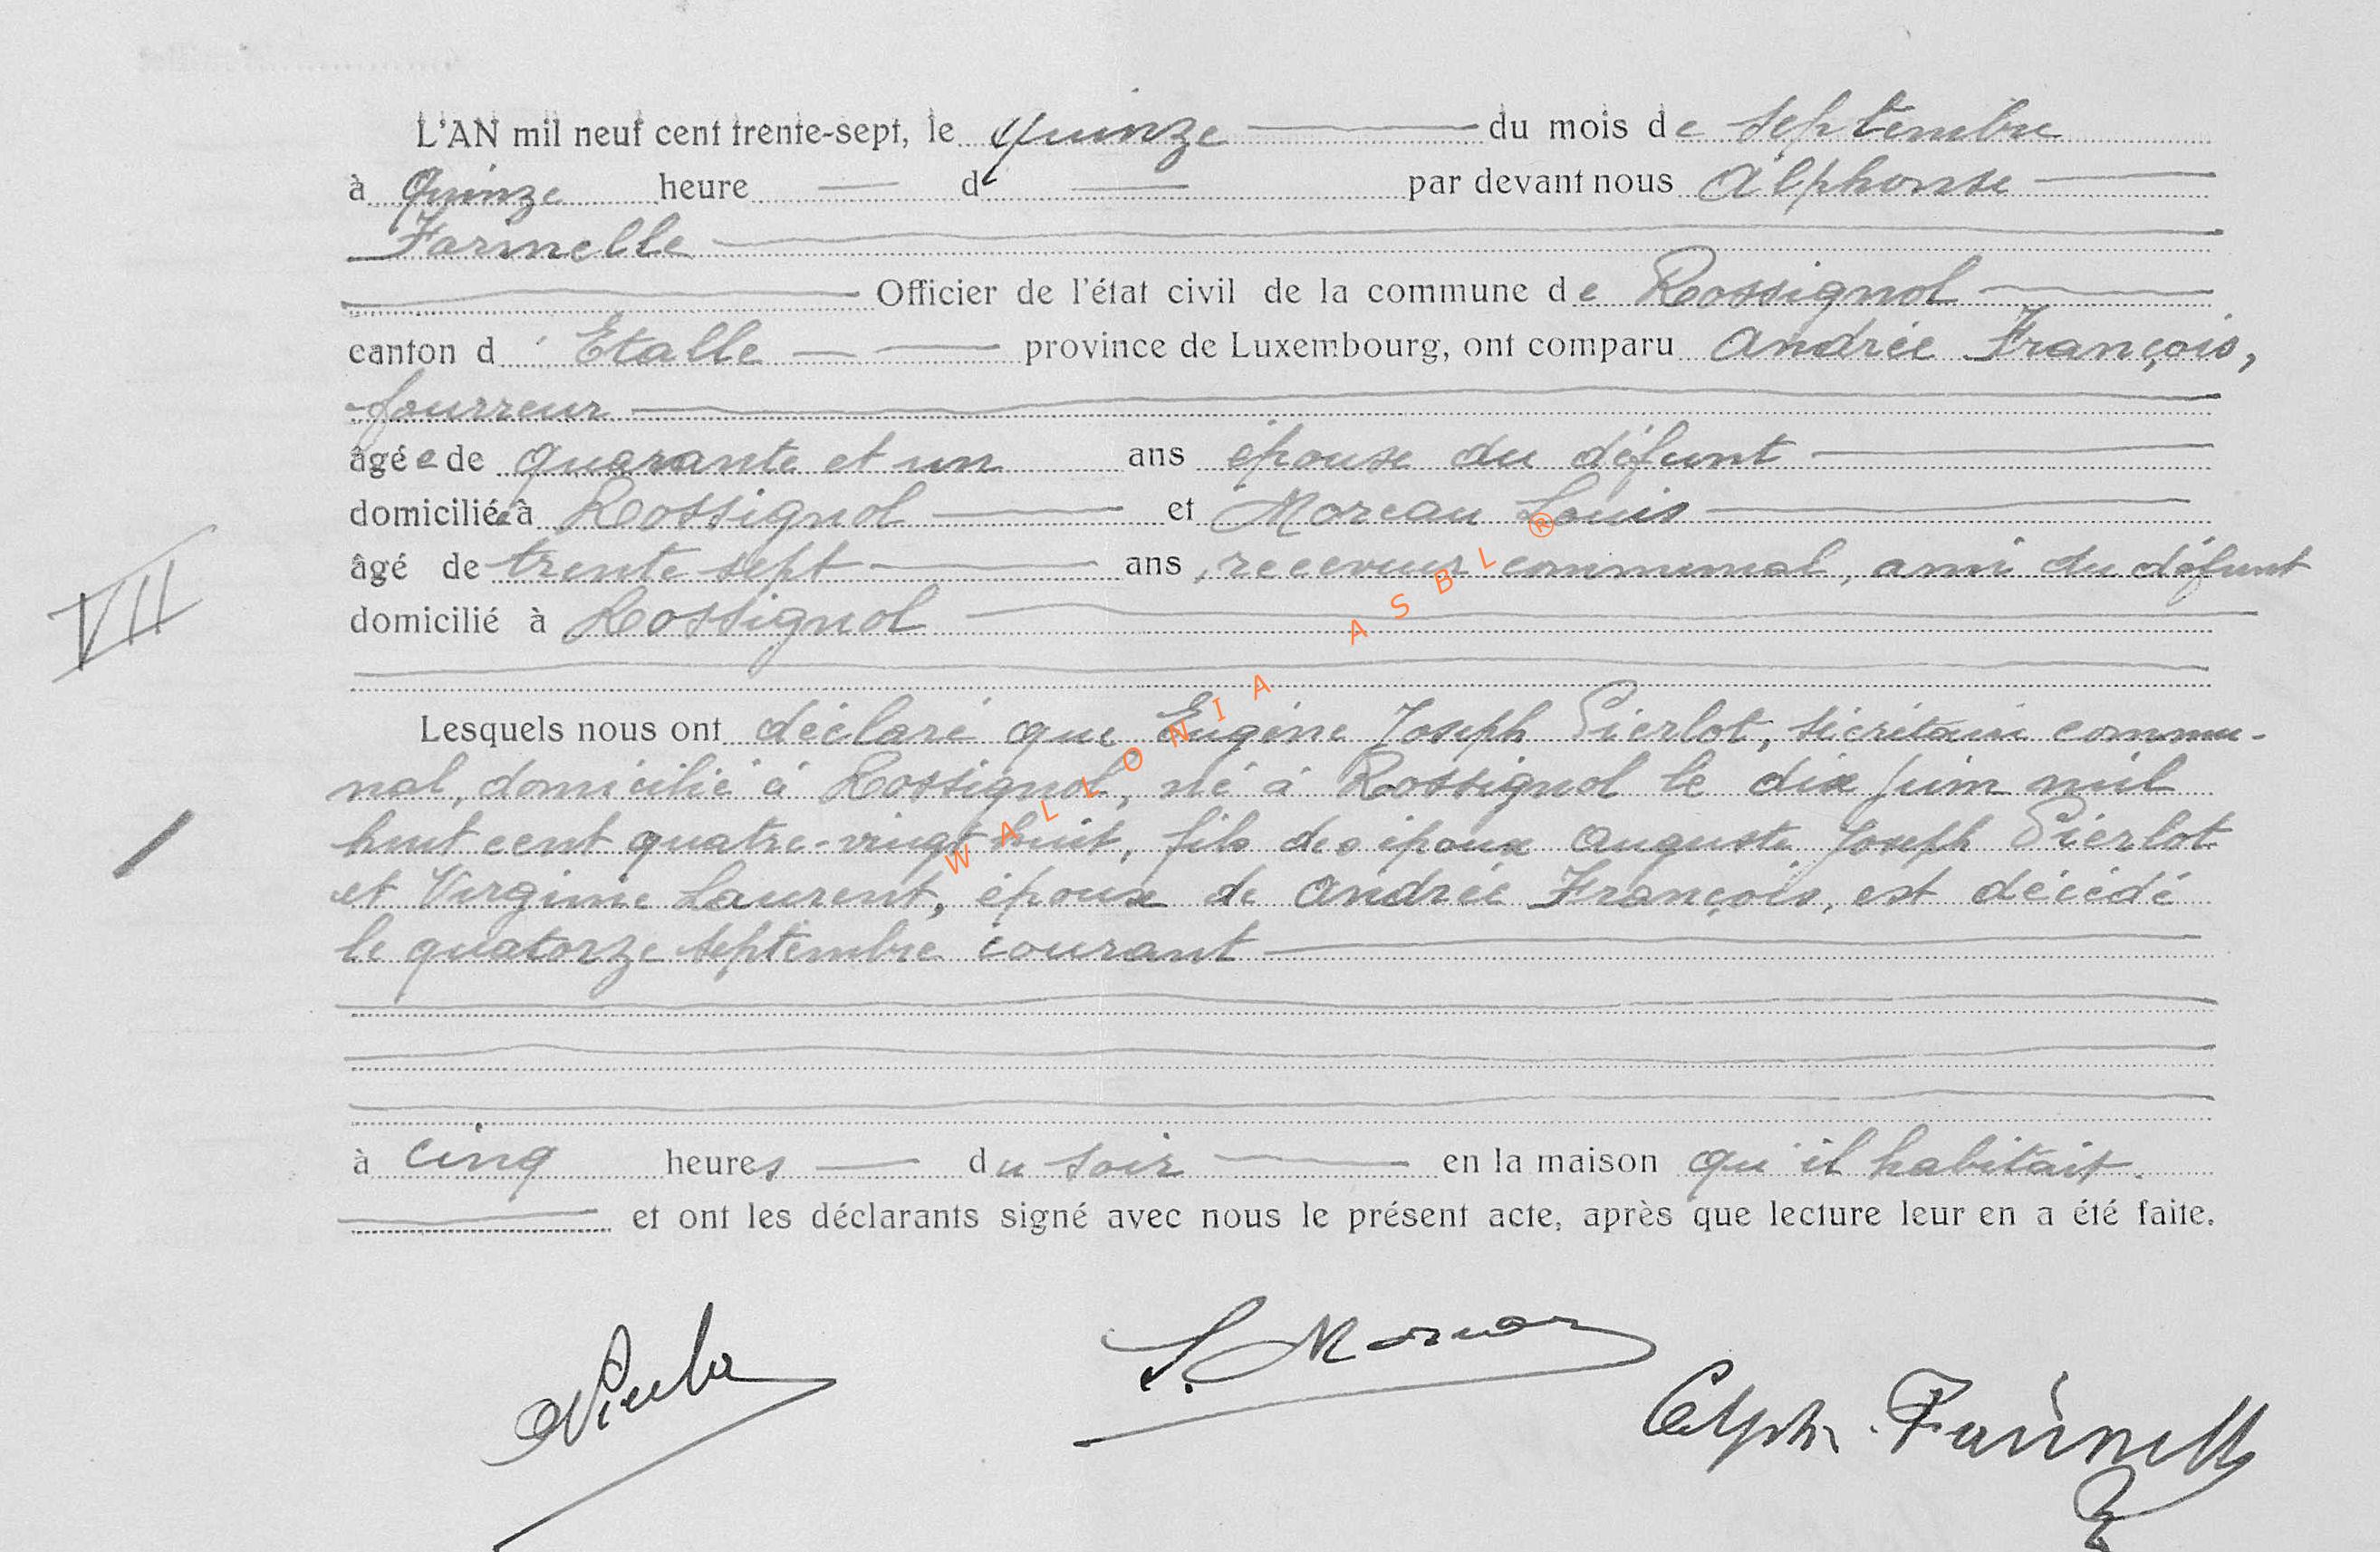 L'AN mil neuf cent trente-sept, le quinze du mois de septembre
à Quinze heure d par devant nous Alphonse
Farinelle
Officier de l'état civil de la commune de Rossignol
canton d' Etalle province de Luxembourg, ont comparu Andrée François,
fourreur
âgée de quarante et un ans épouse du défunt
domiciliée à Rossignol et Moreau Louis
âgé de trente sept ans, receveur communal, ami du défunt
domicilié à Rossignol
VII
Lesquels nous ont déclaré que Eugène Joseph Pierlot, sécrétaire commu-
nal, domicilié à Rossignol, né à Rossignol le dix juin mil
huit cent quatre-vingt huit, fils des époux Auguste Joseph Pierlot
et Virginie Laurent, époux de Andrée François, est décédé
le quatorze septembre courant
à cinq heures du soir en la maison qu'il habitait.
et ont les déclarants signé avec nous le présent acte, après que lecture leur en a été faite.
L. Moreau
Alph. Farinelle
WALLONIA ASBL ®